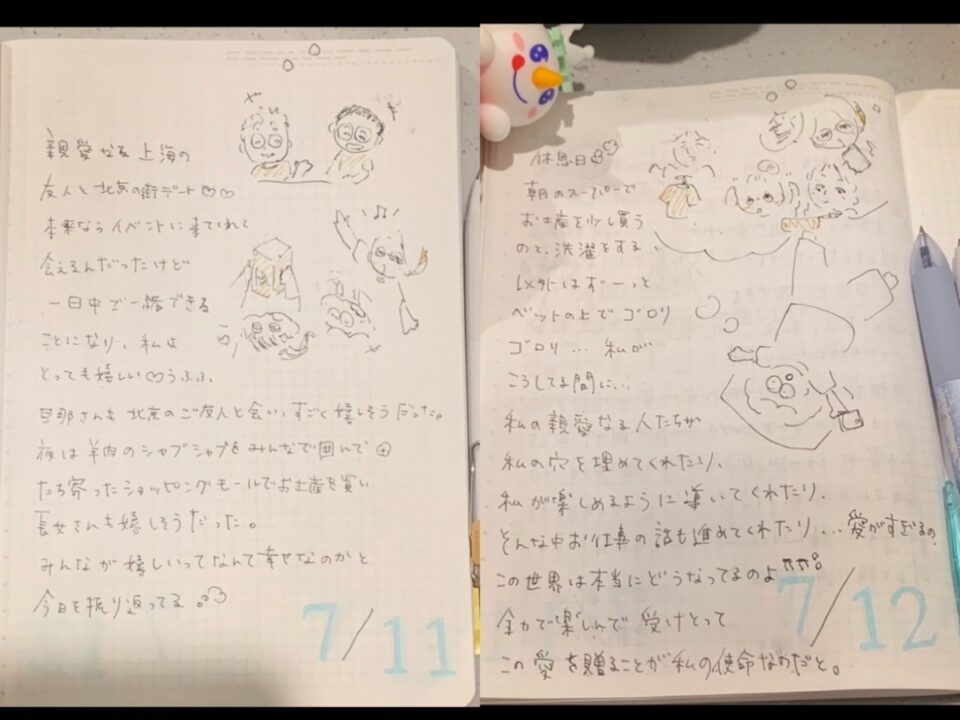 親愛なる上海の
友人と北京の街デート♡♡
本来ならイベントに来てくれて
会えるんだったけど
一日中ご一緒できる
ことになり、私は
とっても嬉しい♡うふふ、
旦那さんも北京のご友人と会い、すごく嬉しそうだった。
夜は羊肉のシャブシャブをみんなで囲んで
たち寄ったショッピングモールでお土産を買い
長女さんも嬉しそうだった。
みんなが嬉しいってなんて幸せなのかと
今日を振り返ってる。
7/11
休息日
朝のスーパーで
お土産を少し買う
のと、洗濯をする
以外はずーっと
ベットの上でゴロリ
ゴロリ... 私が
こうしてる間に...
私の親愛なる人たちが
私の穴を埋めてくれたり、
私が楽しめるように導いてくれたり、
そんな中お仕事の話も進めてくれたり...愛がすぎるの
この世界は本当にどうなってるのよ
全力で楽しんで受けとって
この愛を贈ることが私の使命なのだと。
7/12